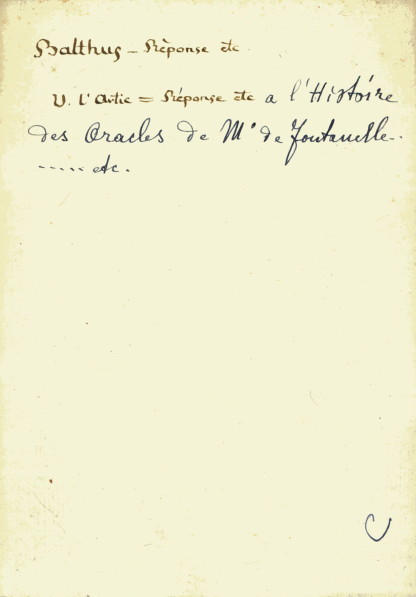 Balthus – Réponse etc
V. l'Artie = Réponse etc a l'Histoire
des Oracles de Mr de Fontanelle..
..... etc.